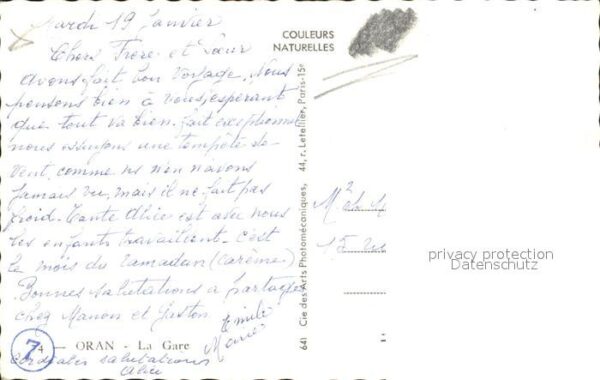 Mardi 19 Janvier
Chers Frère et Sœur
avons fait bon voyage. Nous
pensons bien à vous, espérant
que tout va bien. fait exceptionnel
nous essuyons une tempête de
vent, comme ns n'en n'avons
jamais vu, mais il ne fait pas
froid. Tante Alice est avec nous
les enfants travaillent. C'est
le mois du ramadan (carême)
Bonnes salutations à partager
chez Manon et Gaston
Emile
Marie
7
4 — ORAN - La Gare
cordiales salutations
Alice
COULEURS
NATURELLES
641 Cie des Arts Photomécaniques, 44, r. Letellier, Paris-15e
15
privacy protection
Datenschutz